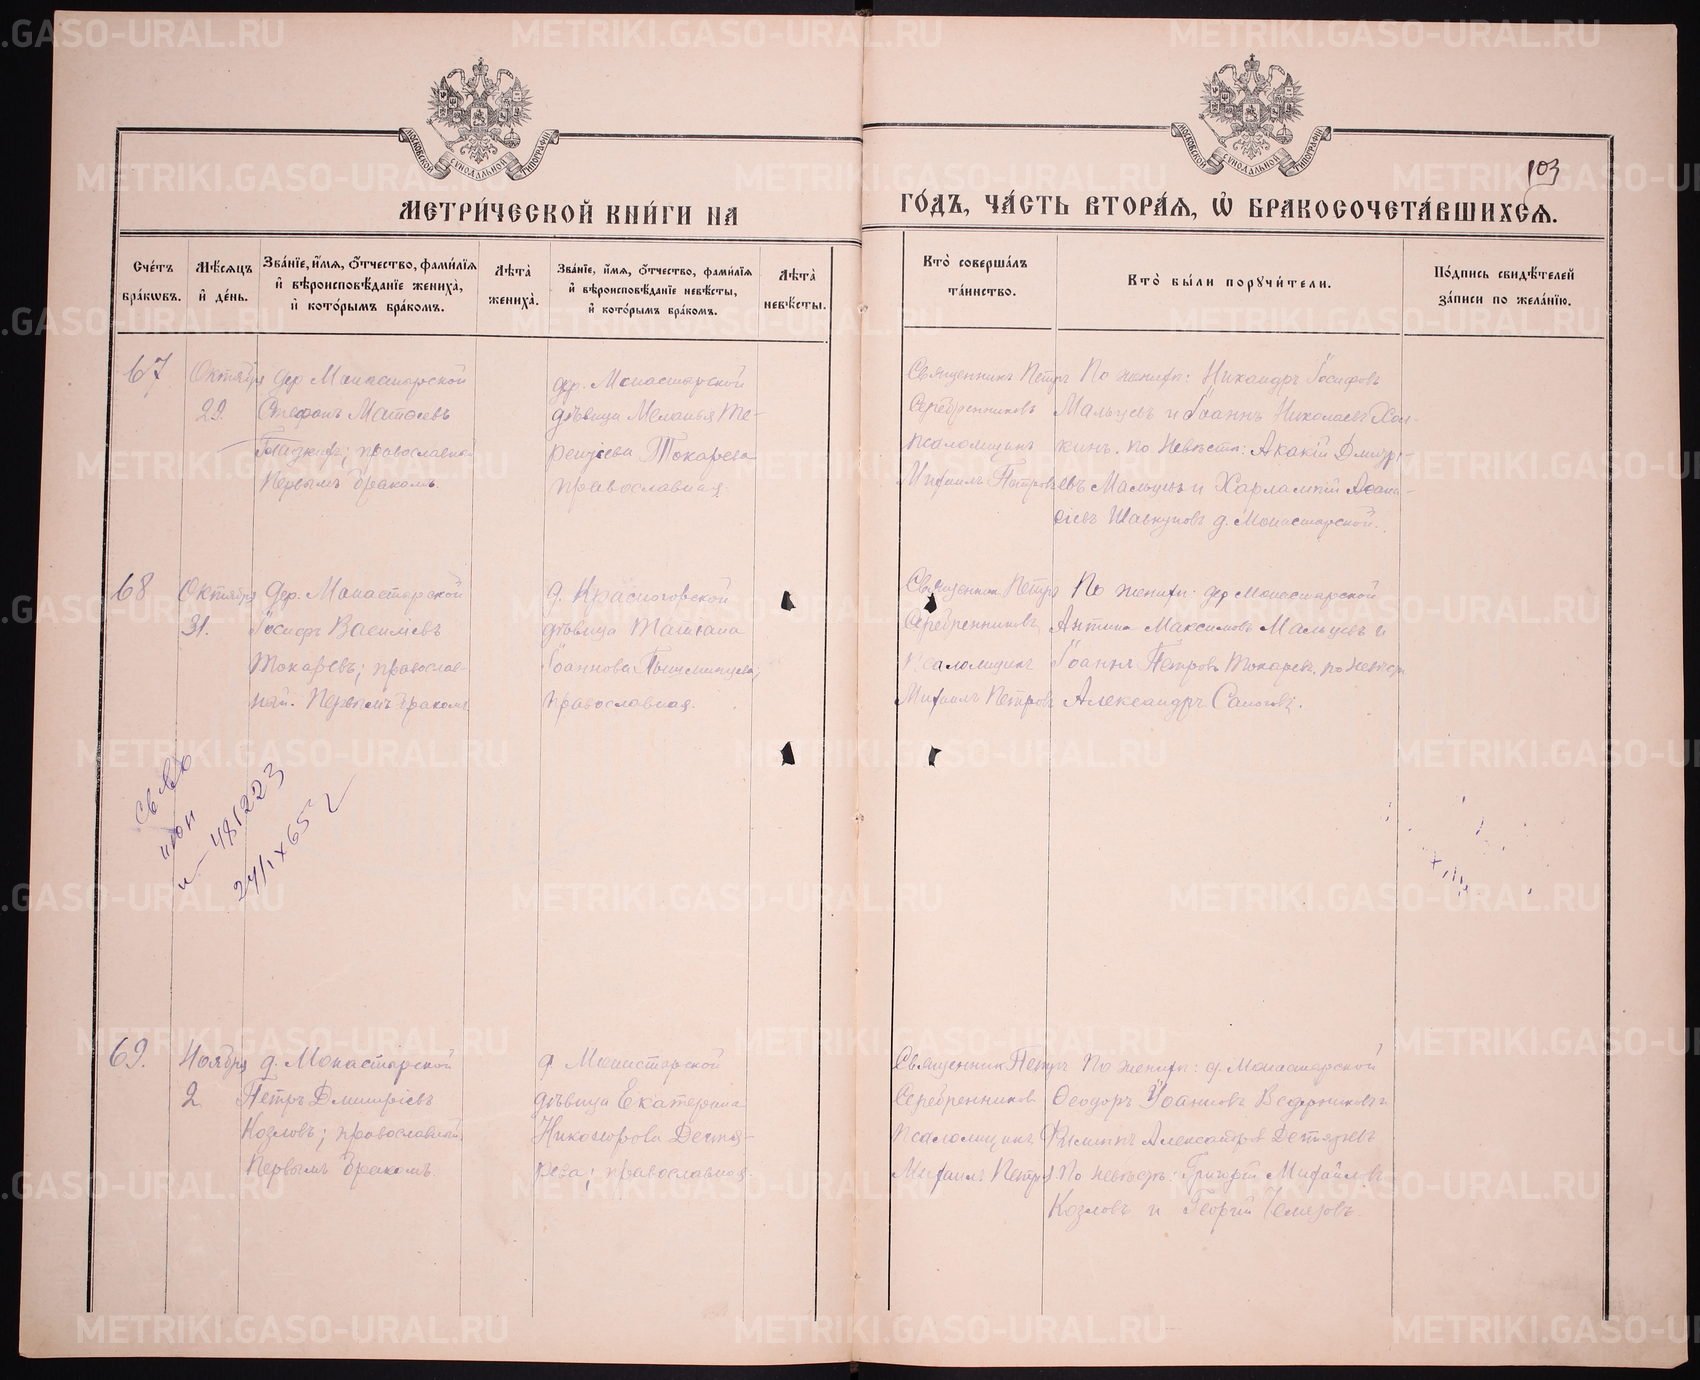 МОСКОВСКОЙ СѴНОДАЛЬНОЙ ТИПОГРАФІИ
МОСКОВСКОЙ СѴНОДАЛЬНОЙ ТИПОГРАФІИ
103
МЕТРИ́ЧЕСКОЙ КНИ́ГИ НА
ГО́ДЪ, ЧА́СТЬ ВТОРА́Я, Ѡ҆ БРАКОСОЧЕТА́ВШИХСЯ.
Сче́тъ бра́кѡвъ.
Мѣ́сяцъ и҆ де́нь.
Зва́нїе, и҆́мя, ѻ҆́тчество, фами́лїя и҆ вѣроисповѣ́данїе жениха̀, и҆ кото́рымъ бра́комъ.
Лѣта̀ жениха̀.
Зва́нїе, и҆́мя, ѻ҆́тчество, фами́лїя и҆ вѣроисповѣ́данїе невѣ́сты, и҆ кото́рымъ бра́комъ.
Лѣта̀ невѣ́сты.
Кто̀ соверша́лъ та́инство.
Кто̀ бы́ли порꙋчи́тели.
По́дпись свидѣ́телей за́писи по жела́нїю.
67
Октября
29.
дер Монастырской
Стефанъ
православный
Первымъ бракомъ.
дер. Монастырской
дѣвица Меланья Те-
рентьева Токарева
православная.
Священникъ Петръ
Серебренниковъ
псаломщикъ
Михаилъ Петровъ
По женихѣ: Никандръ Іосифовъ
Мальцевъ и Іоаннъ Николаевъ
кинъ. по Невѣстѣ: Акакій Дмитрі-
евъ Мальцевъ и Харлампій Аѳана-
сіевъ д. Монастырской.
68
Октября
31.
Дер. Монастырской
Іосифъ Василіевъ
Токаревъ; православ-
ный. Первымъ бракомъ.
д. Красногорской
дѣвица Татіана
Іоаннова Пышминцева;
православная.
Священник Петръ
Серебренниковъ
псаломщикъ
Михаилъ Петровъ
По женихѣ: дер Монастырской
Антипа Максимовъ Мальцевъ и
Іоаннъ Петровъ Токаревъ. по невѣстѣ
Александръ Сапоговъ.
св-во
481223
24/IX 65
69.
Ноября
2
д. Монастырской
Петръ Димитріевъ
Козловъ; православный
Первымъ бракомъ.
д. Монастырской
дѣвица Екатерина
Никонорова Дегтя-
рева; православная.
Священник Петръ
Серебренников
псаломщикъ
Михаилъ Петровъ
По женихѣ: д. Монастырской
Ѳеодоръ Іоанновъ Ведерниковъ и
Филиппъ Александровъ Дегтяревъ
По невѣстѣ: Григорій Михайловъ
Козловъ и Георгій Чемезовъ.
METRIKI.GASO-URAL.RU